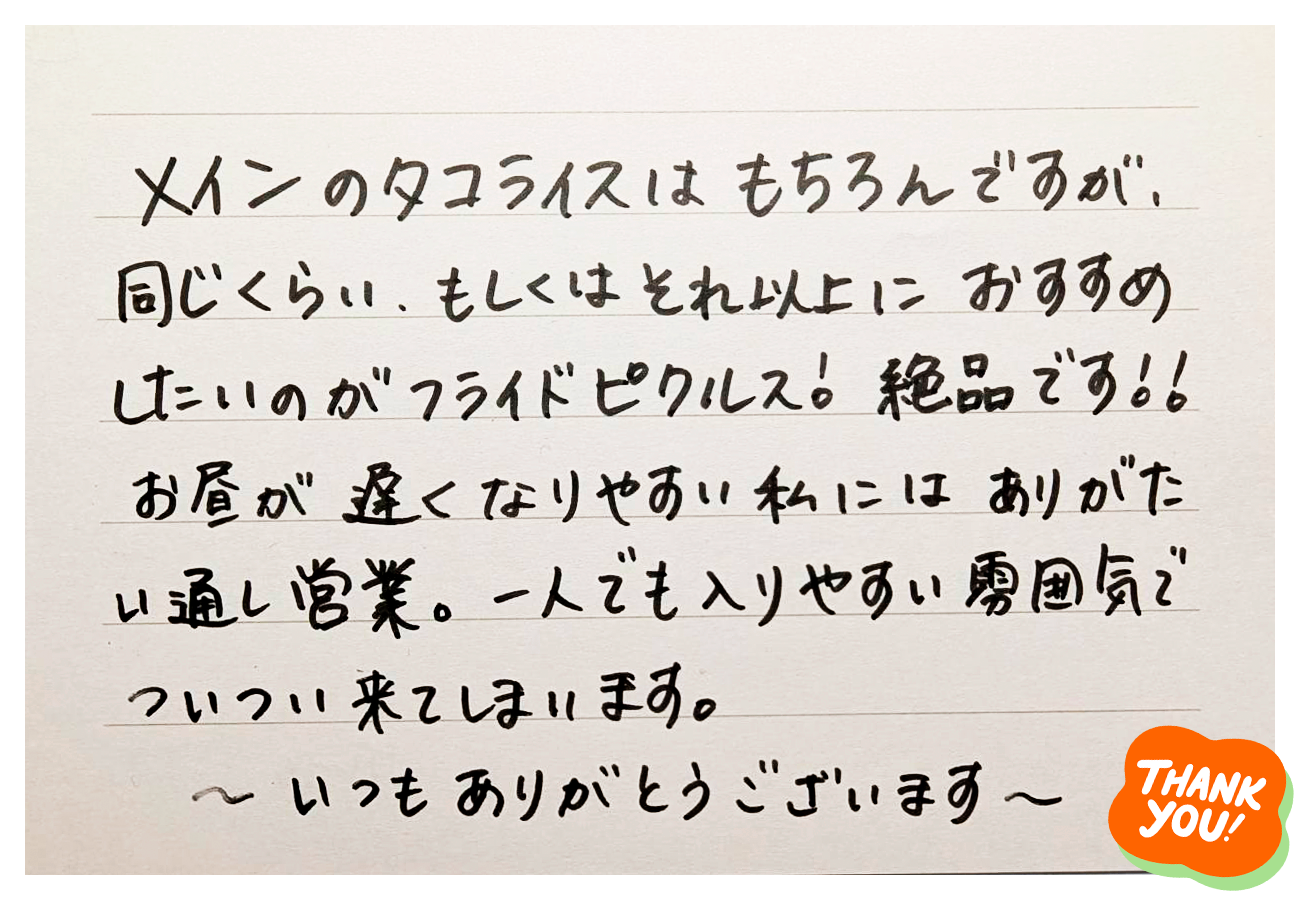 メインのタコライスはもちろんですが、
同じくらい、もしくはそれ以上におすすめ
したいのがフライドピクルス！絶品です！！
お昼が遅くなりやすい私にはありがた
い通し営業。一人でも入りやすい雰囲気で
ついつい来てしまいます。
～いつもありがとうございます～
THANK
YOU!